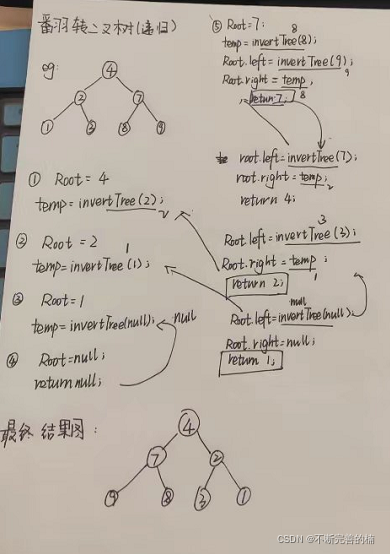 番羽转二叉树(递归)
eg:
4
2 7
1 3 8 9
① Root = 4
temp = invertTree(2);
2
② Root = 2
1
temp = invertTree(1);
③ Root = 1
temp = invertTree(null);
null
④ Root = null;
return null;
⑤ Root = 7;
8
temp = invertTree(8);
Root.left = invertTree(9);
9
Root.right = temp;
8
return 7;
root.left = invertTree(7);
root.right = temp;
2
return 4;
3
Root.left = invertTree(3);
Root.right = temp;
1
return 2;
null
Root.left = invertTree(null);
Root.right = null;
return 1;
最终结果图:
4
7 2
9 8 3 1
CSDN @不断完善的楠